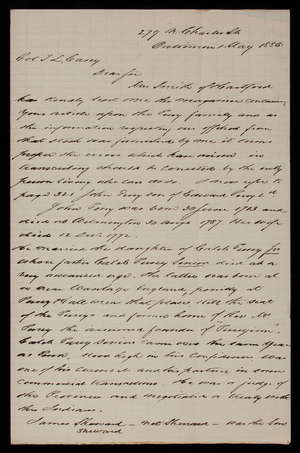 279 N. Charles St
Baltimore 1 May 1886
Col T. L. Casey
Dear Sir
Mr Smith of Hartford
has kindly lent me the magazine containing
your article upon the Perry family and as
the information respecting our offshoot from
that stock was furnished by me it seems
proper the errors which have arisen in
transcribing should be corrected by the only
person living who can do so. I now refer to
page 321: John Perry son of Edward Perry 2d
John Perry was born 30 June 1743 and
died at Wilmington 20 Aug 1787. His wife
died 12 Dec. 1772.
He married the daughter of Caleb Pusey Jr
whose father Caleb Pusey Senior died at a
very advanced age. The latter was born at
or near Wantage England, possibly at
Pusey Hall near that place still the seat
of the Puseys and former home of Rev. Mr
Pusey the famous founder of "Puseyism".
Caleb Pusey Senior came over the same year
as Penn. Stood high in his confidence. Was
one of his Council and his partner in some
commercial transactions. He was a judge of
the Province and negotiated a treaty with
the Indians.
James Sheward — not Shenard — was the son
Sheward